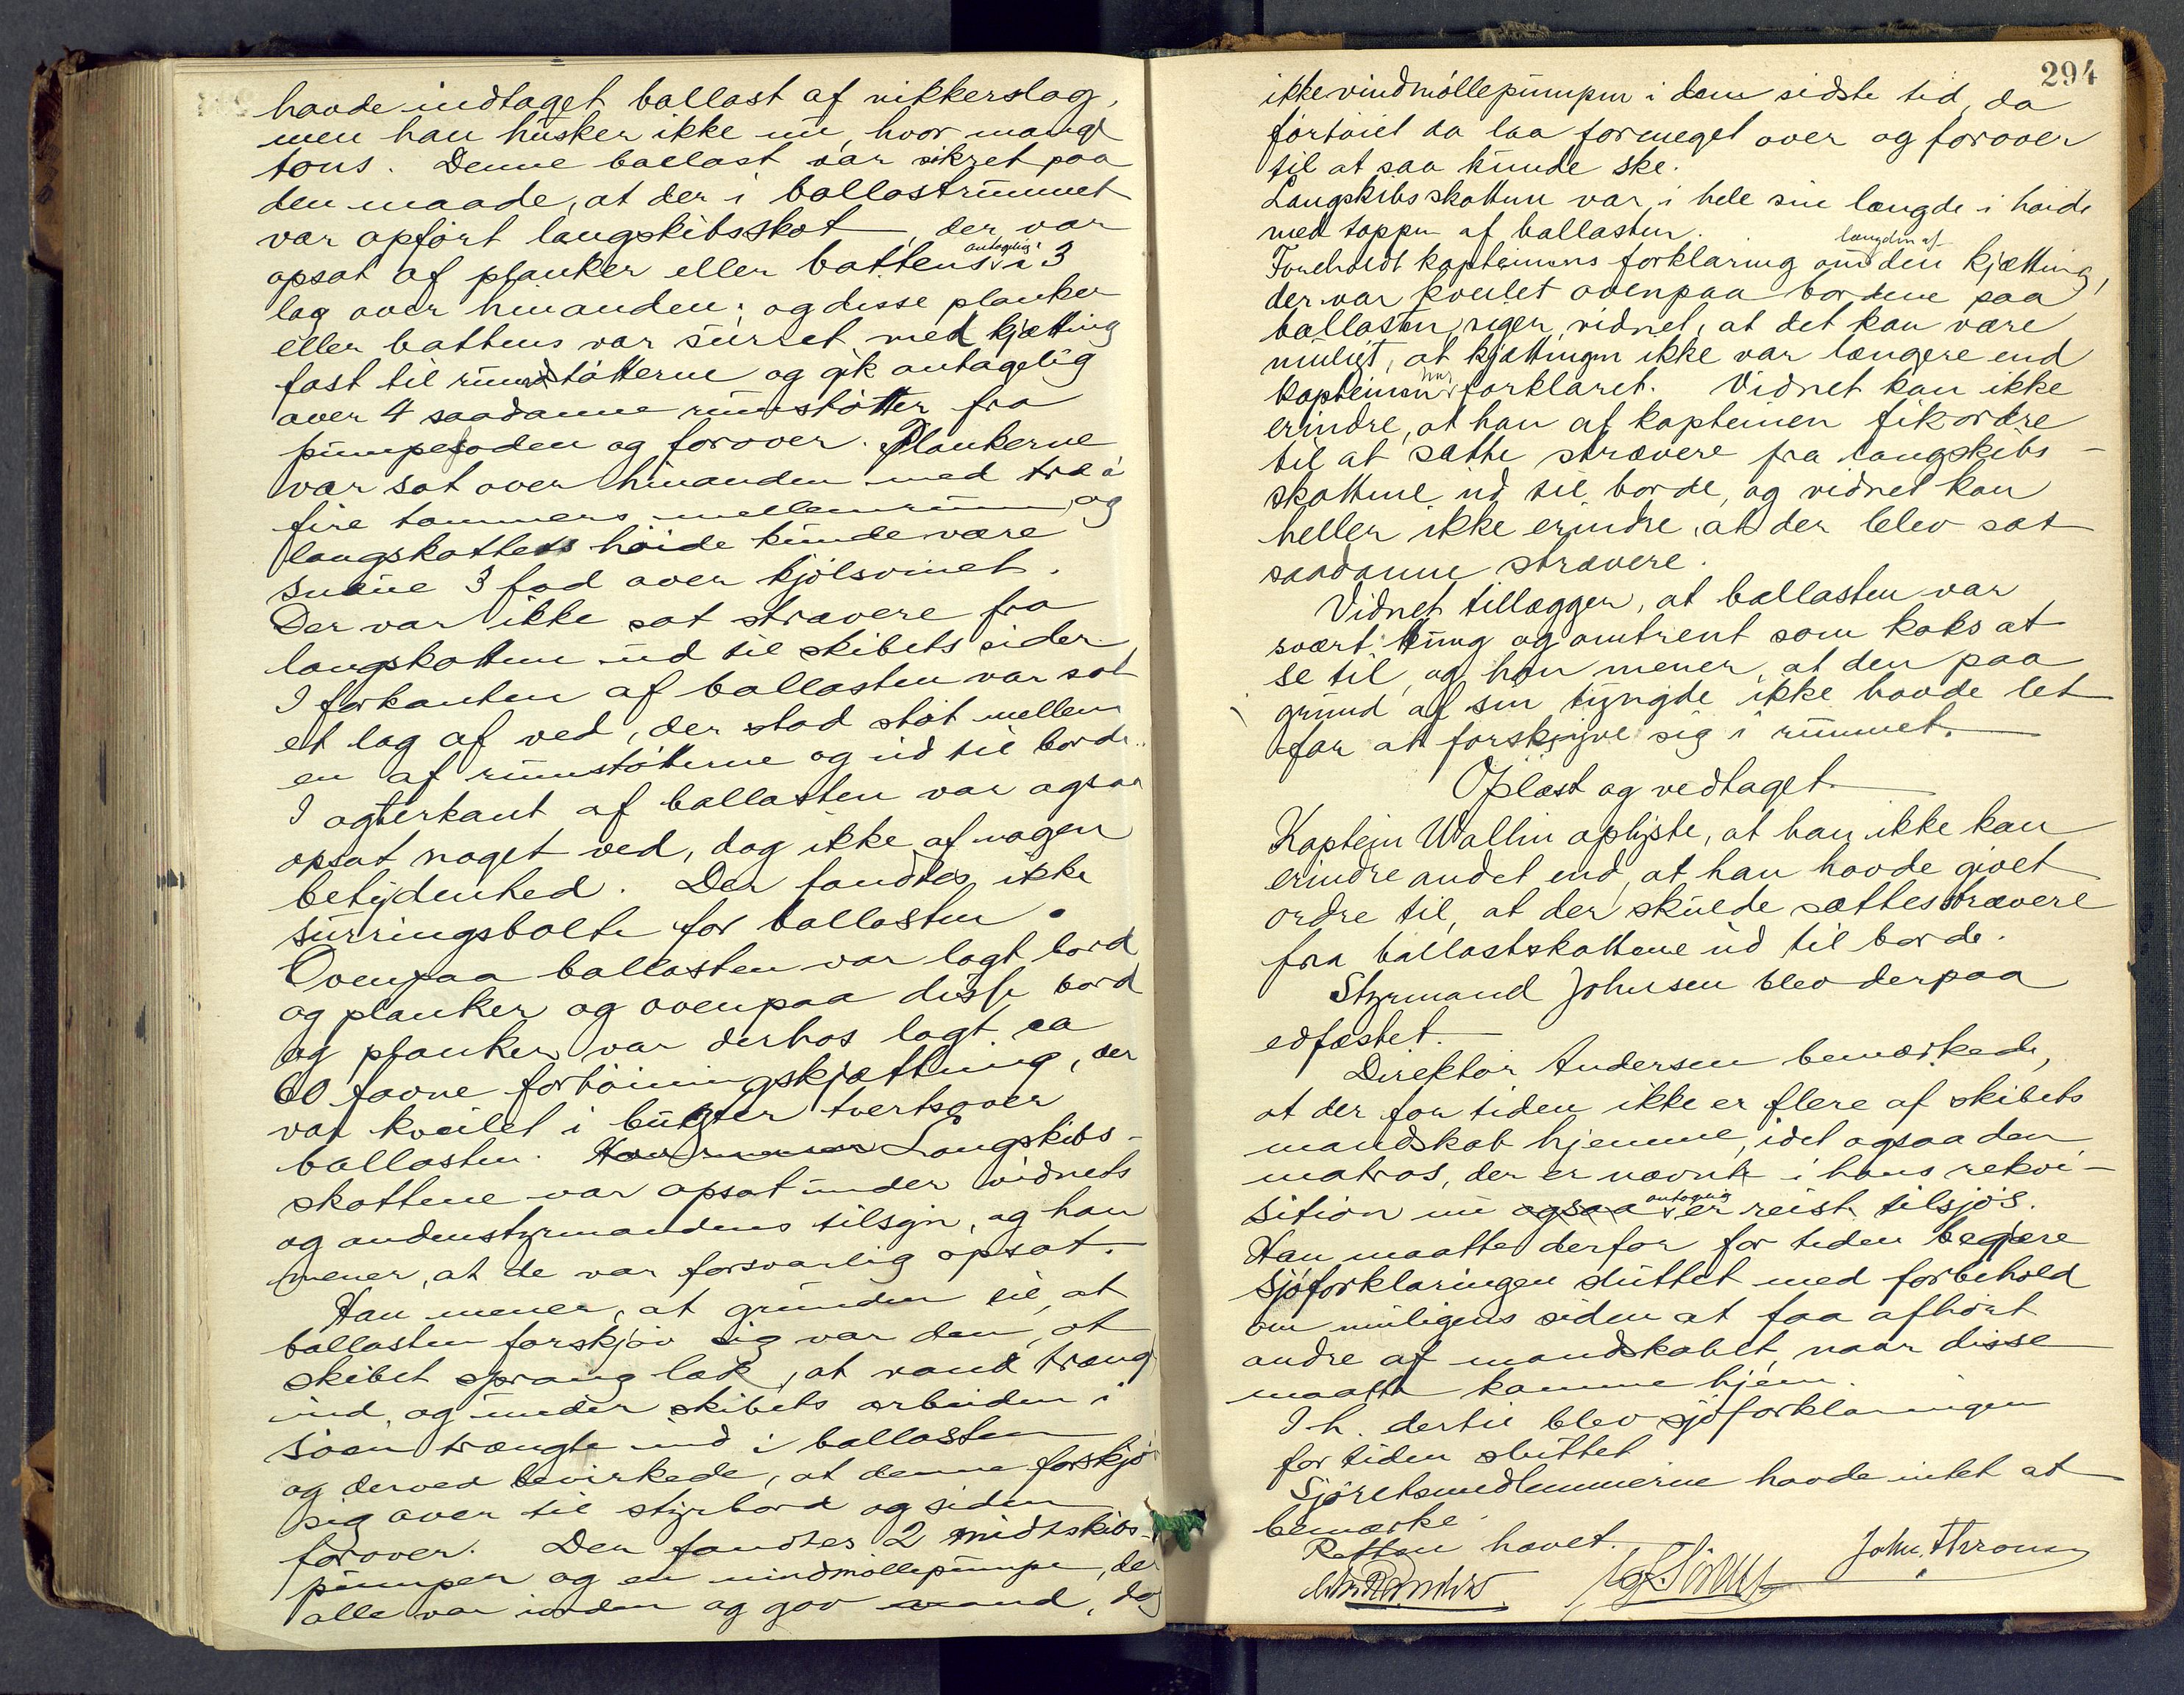 havde indtaget ballast af nikkerslag,
men han husker ikke nu, hvor mange
tons. Denne ballast var sikret paa
den maade, at der i ballastrummet
var opført langskibsskot, der var
opsat af planker eller battens antagelig i 3
lag over hinanden; og disse planker
eller battens var surret med kjætting
fast til rumstøtterne og gik antagelig
over 4 saadanne rumstøtter fra
pumpesoden og forover. Plankerne
var sat over hinanden med tre à
fire tommers mellemrum og
langskottets høide kunde være
snaue 3 fod over kjølsvinet.
Der var ikke sat strævere fra
langskottene ud til skibets sider.
I forkanten af ballasten var sat
et lag af ved, der stod støt mellem
en af rumstøtterne og ud til borde.
I agterkant af ballasten var ogsaa
opsat noget ved, dog ikke af nogen
betydenhed. Der fandtes ikke
surringsbolte for ballasten.
Ovenpaa ballasten var lagt bord
og planker og ovenpaa disse bord
og planker var derhos lagt ca
60 favne fortøiningskjætting, der
var kveilet i bugter tvertsover
ballasten. Langskibs-
skottene var opsat under vidnets
og andenstyrmandens tilsyn, og han
mener, at de var forsvarlig opsat.
Han mener, at grunden til, at
ballasten forskjøv sig var den, at
skibet sprang læk, at vand trængt
ind, og under skibets arbeiden i
sjøen trængte ind i ballasten
og derved bevirkede, at denne forskjø
sig over til styrbord og siden
forover. Der fandtes 2 midtskibs-
pumper og en vindmøllepumpe, de
alle var iorden og gav vand, dog
294
ikke vindmøllepumpen i den sidste tid, da
fartøiet da laa formeget over og forover
til at saa kunde ske.
Langskibsskottene var i hele sin længde i høide
med toppen af ballasten.
Foreholdt kapteinens forklaring om længden af den kjætting,
der var kveilet ovenpaa bordene paa
ballasten, siger vidnet, at det kan være
muligt, at kjættingen ikke var længere end
kapteinen har forklaret. Vidnet kan ikke
erindre, at han af kapteinen fik ordre
til at sætte strævere fra langskibs-
skottene ud til borde, og vidnet kan
heller ikke erindre, at der blev sat
saadanne strævere.
Vidnet tillægger, at ballasten var
svært tung og omtrent som koks at
se til, og han mener, at den paa
grund af sin tyngde ikke havde let
for at forskjyve sig i rummet.
Oplæst og vedtaget.
Kaptein Wallin oplyste, at han ikke kan
erindre andet end, at han havde givet
ordre til, at der skulde sættes strævere
fra ballastskottene ud til borde.
Styrmand Johnsen blev derpaa
edfæstet.
Direktør Andersen bemærkede,
at der for tiden ikke er flere af skibets
mandskab hjemme, idet ogsaa den
matros, der er nævnt i hans rekvi-
sition nu ogsaa antagelig er reist tilsjøs.
Han maatte derfor for tiden begjære
sjøforklaringen sluttet med forbehold
om muligens siden at faa afhørt
andre af mandskabet, naar disse
maatte komme hjem.
I h. dertil blev sjøforklaringen
for tiden sluttet
Sjøretsmedlemmerne havde intet at
bemærke.
Retten hævet.